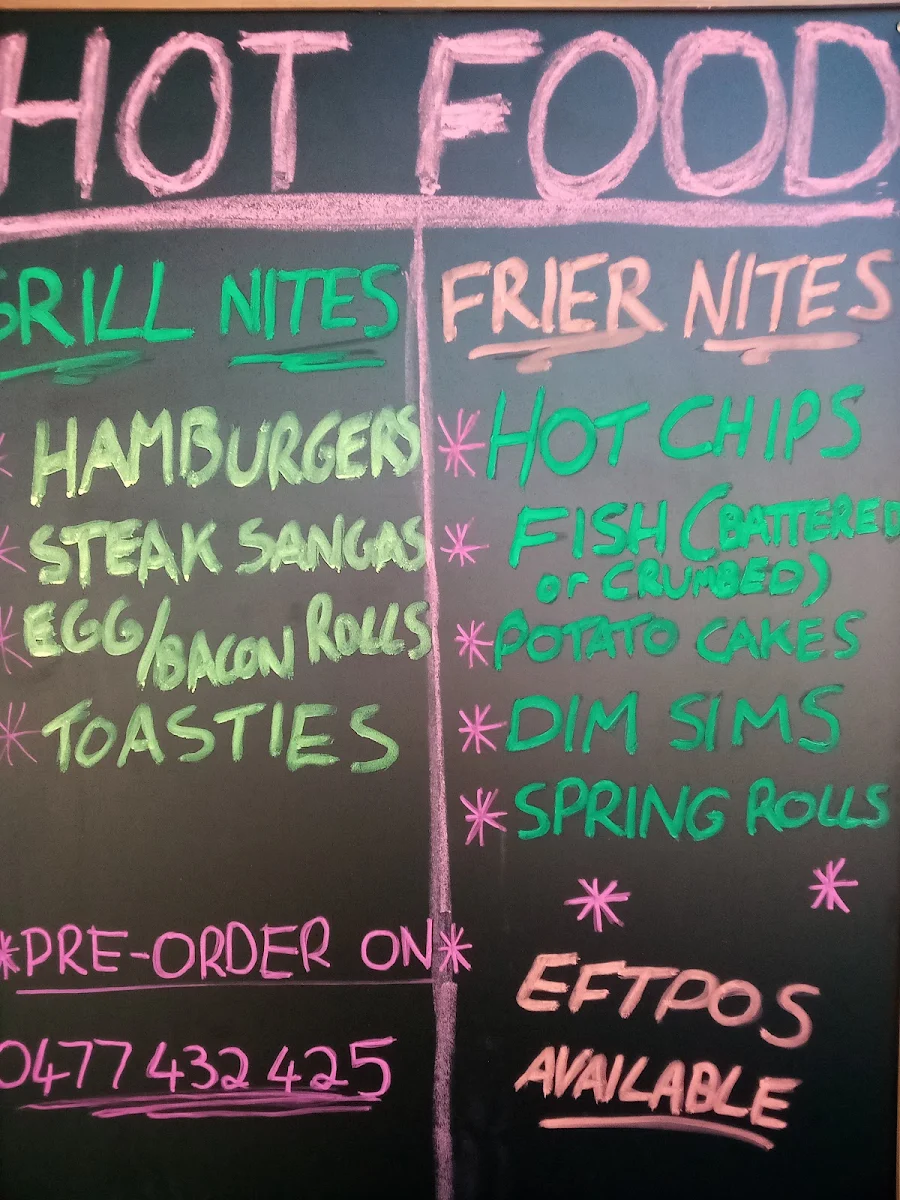 HOT FOOD
GRILL NITES
* HAMBURGERS
* STEAK SANGAS
* EGG/BACON ROLLS
* TOASTIES
*PRE-ORDER ON*
0477 432 425
FRIER NITES
* HOT CHIPS
* FISH (BATTERED
or CRUMBED)
* POTATO CAKES
* DIM SIMS
* SPRING ROLLS
* *
EFTPOS
AVAILABLE